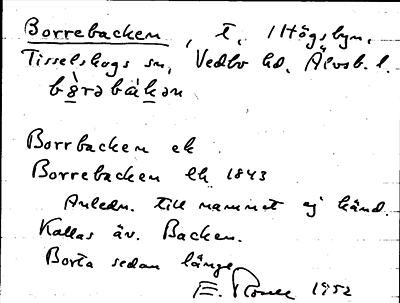 Borrebacken, t, /Högsbyn,
Tisselskogs sn, Vedbo hd, Älvsb. l.
bɵ̀rəbàkən
Borrbacken ek
Borrebacken lk 1843
Anledn. till namnet ej känd.
Kallas äv. Backen.
Borta sedan länge
E. 1952